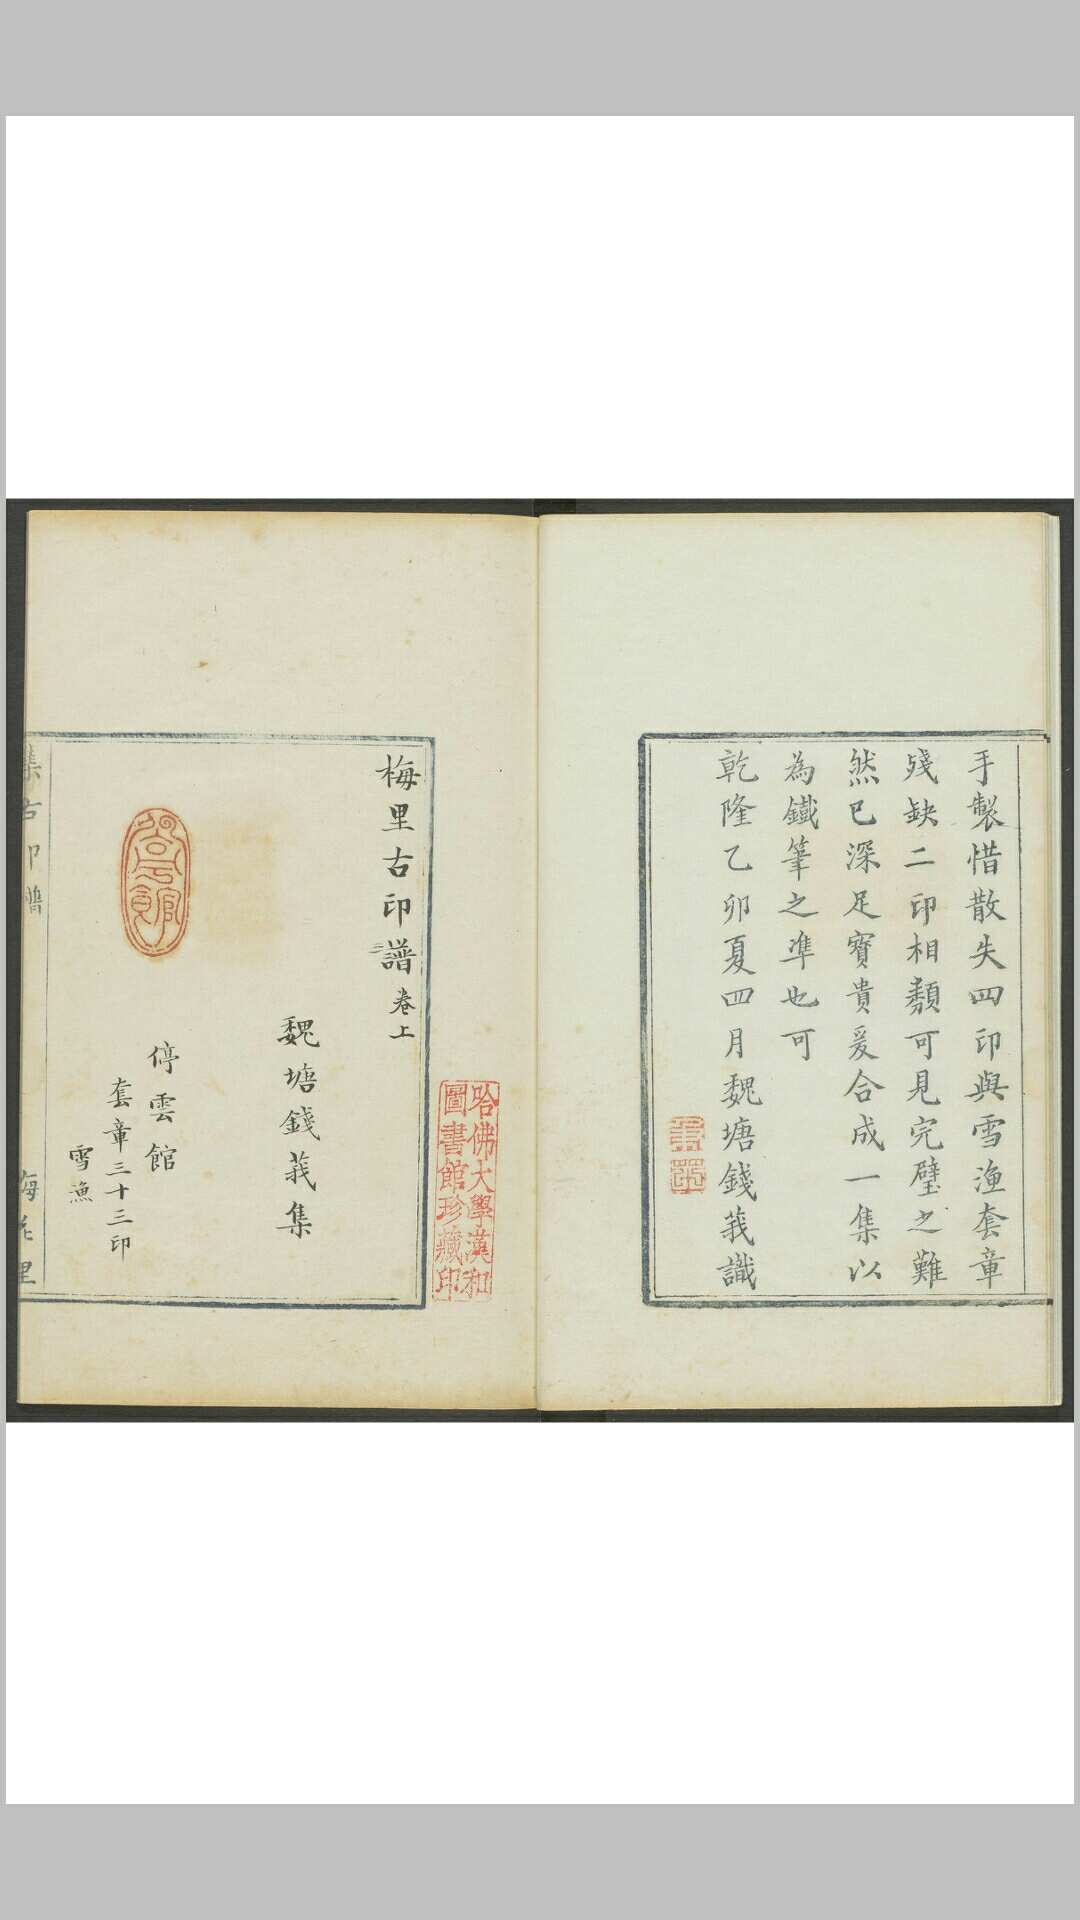 手製惜散失四印與雪漁套章
殘缺二印相類可見完璧之難
然已深足寶貴爰合成一集以
為鐵筆之準也可
乾隆乙卯夏四月魏塘錢莪識
哈佛大學漢和
圖書館珍藏印
梅里古印譜卷上
魏塘錢莪集
停雲館
停雲館
套章三十三印
雪漁
集古印譜
梅花里